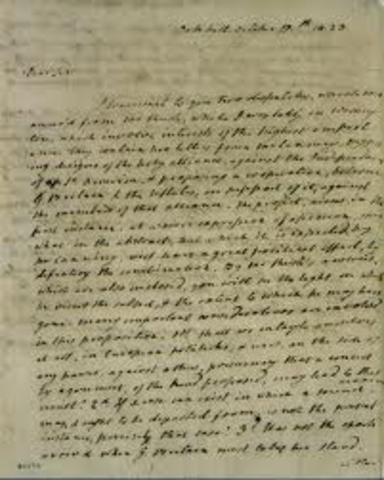 Oakhill October 17th 1823
Dear Sir
I transmit to you two despatches, which were
receiv'd from Mr Rush, while I was lately in Washing
ton, which involve interests of the highest import
ance. They contain two letters from Mr Canning, suggest
ing designs of the holy alliance, against the Independence
of So America, & proposing a cooperation, between
G. Britain & the UStates, in support of it, against
the members of that alliance. The project, aims in the
first instance, at a mere expression of opinion, some
what in the abstract, but which it is expected by
Mr Canning, will have a great political effect, by
defeating the combination. By Mr Rush's answers,
which are also enclosed, you will see the light in which
he views the subject, & the extent to which he may have
gone. Many important considerations are involved
in this proposition. 1st Shall we entangle ourselves,
at all, in European politicks, & wars, on the side of
any power, against others, presuming that a concert
by agreement, of the kind proposed, may lead to that
result? 2d If a case can exist in which a sound maxim
may, & ought to be departed from, is not the present
instance, precisely that case? 3d Has not the epoch
arriv'd when G. Britain must take her stand,